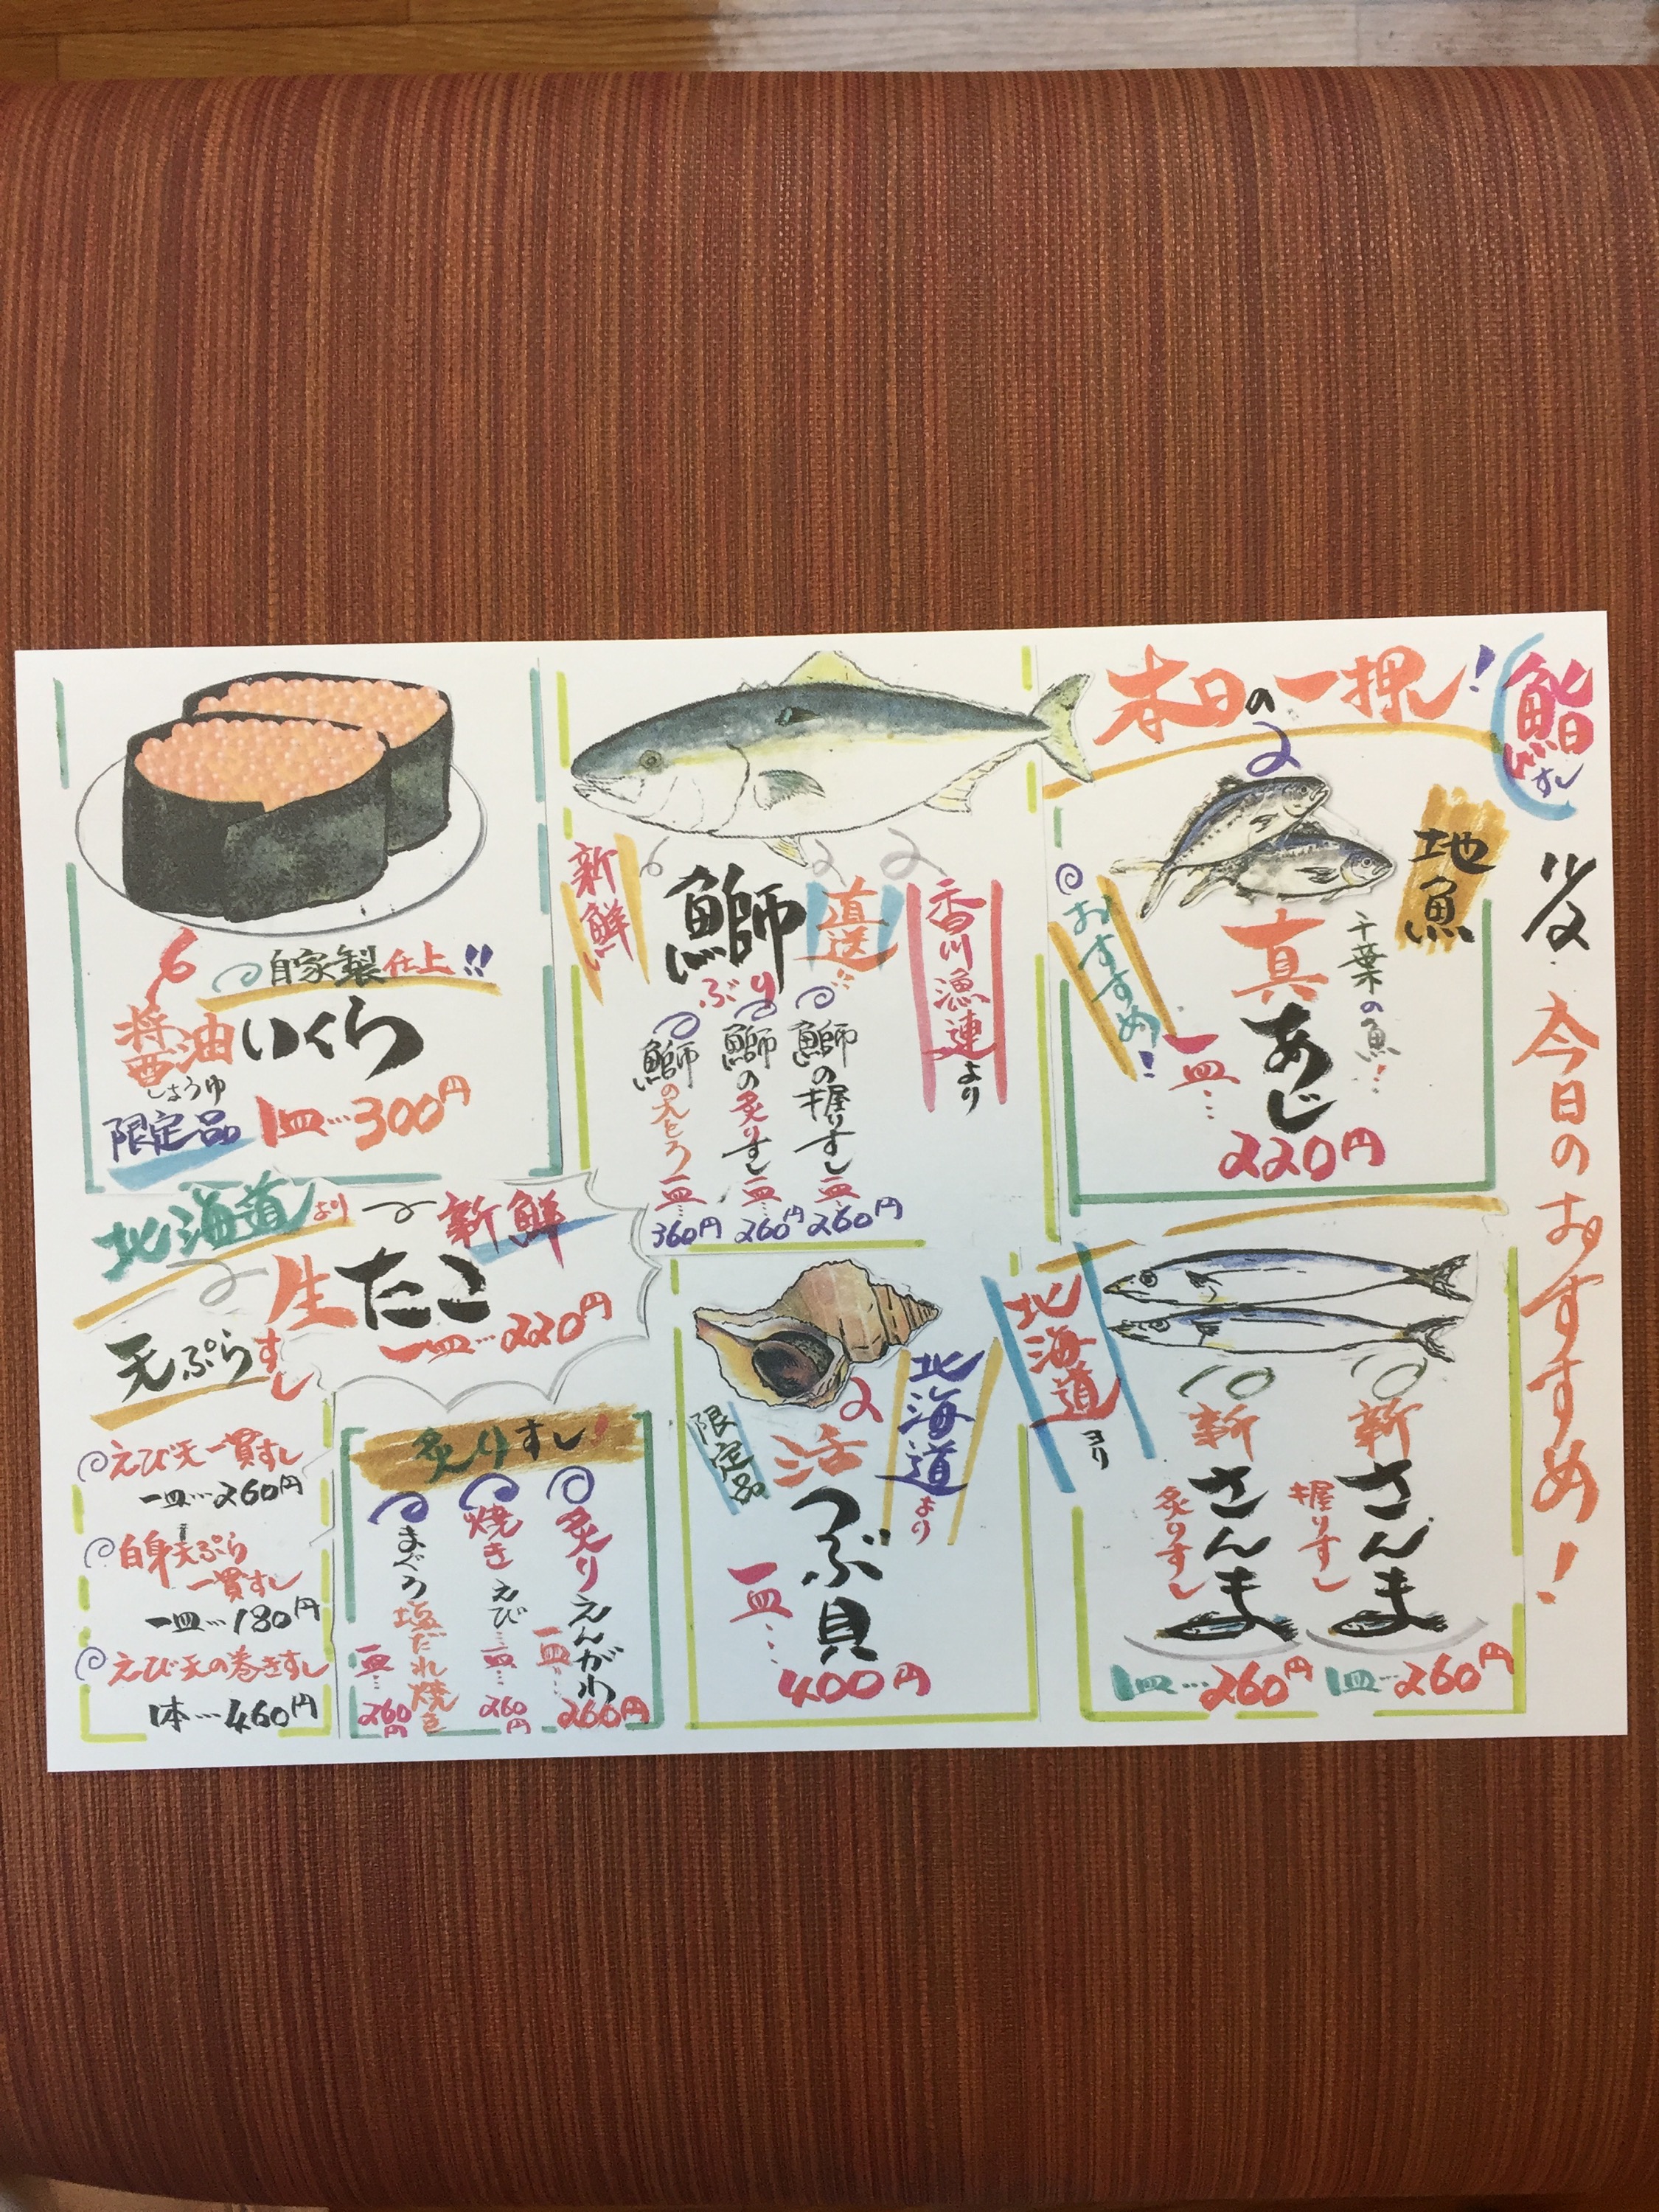 鮨
すし
今日のおすすめ!
本日の一押し!
地魚
千葉の魚!
真あじ
おすすめ!
一皿…
220円
香川漁連より
直送
鰤
ぶり
新鮮
鰤の握りすし一皿…
260円
鰤の炙りすし一皿…
260円
鰤の大とろ一皿…
360円
自家製仕上!!
醤油いくら
しょうゆ
限定品
1皿…300円
北海道より
新鮮
生たこ
一皿…220円
北海道ヨリ
新さんま
握りすし
1皿…260円
新さんま
炙りすし
1皿…260円
北海道より
活つぶ貝
限定品
一皿…
400円
炙りすし!
炙りえんがわ
一皿…
260円
焼きえび…一皿…
260円
まぐろ塩だれ焼き
一皿…
260円
天ぷらすし
えび天一貫すし
一皿…260円
白身天ぷら
一貫すし
一皿…180円
えび天の巻きすし
1本…460円